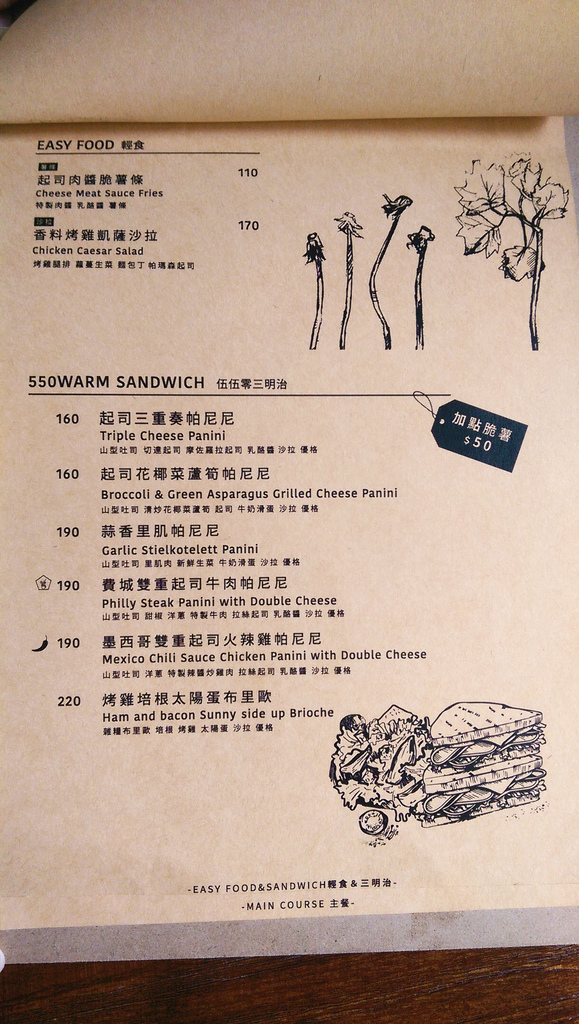 EASY FOOD 輕食
薯條
起司肉醬脆薯條 110
Cheese Meat Sauce Fries
特製肉醬 乳酪醬 薯條
沙拉
香料烤雞凱薩沙拉 170
Chicken Caesar Salad
烤雞腿排 蘿蔓生菜 麵包丁 帕瑪森起司
550WARM SANDWICH 伍伍零三明治
加點脆薯
$50
160 起司三重奏帕尼尼
Triple Cheese Panini
山型吐司 切達起司 摩佐羅拉起司 乳酪醬 沙拉 優格
160 起司花椰菜蘆筍帕尼尼
Broccoli & Green Asparagus Grilled Cheese Panini
山型吐司 清炒花椰菜蘆筍 起司 牛奶滑蛋 沙拉 優格
190 蒜香里肌帕尼尼
Garlic Stielkotelett Panini
山型吐司 里肌肉 新鮮生菜 牛奶滑蛋 沙拉 優格
190 費城雙重起司牛肉帕尼尼
Philly Steak Panini with Double Cheese
山型吐司 甜椒 洋蔥 特製牛肉 拉絲起司 乳酪醬 沙拉 優格
190 墨西哥雙重起司火辣雞帕尼尼
Mexico Chili Sauce Chicken Panini with Double Cheese
山型吐司 洋蔥 特製辣醬炒雞肉 拉絲起司 乳酪醬 沙拉 優格
220 烤雞培根太陽蛋布里歐
Ham and bacon Sunny side up Brioche
雜糧布里歐 培根 烤雞 太陽蛋 沙拉 優格
-EASY FOOD&SANDWICH輕食&三明治-
-MAIN COURSE 主餐-